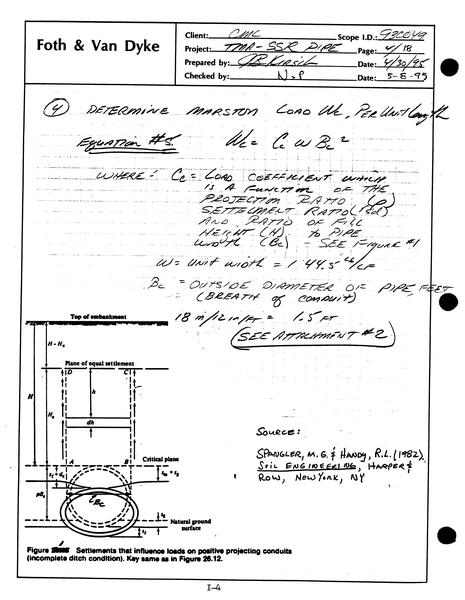 Foth & Van Dyke
Client: CMC Scope I.D.: 93C049
Project: TMA-SSR PIPE Page: 4/18
Prepared by: JB Kirsik Date: 4/30/95
Checked by: N.P Date: 5-8-95
(4) DETERMINE MARSTON LOAD Wc, PER UNIT Length
Equation #3. Wc = Cc w Bc²
WHERE: Cc = LOAD COEFFICIENT WHICH
IS A FUNCTION OF THE
PROJECTION RATIO (p)
SETTLEMENT RATIO (rsd)
AND RATIO OF FILL
HEIGHT (H) TO PIPE
WIDTH (Bc) - SEE FIGURE #1
W = UNIT WIDTH = 144.5 lb/CF
Bc = OUTSIDE DIAMETER OF PIPE, FEET
(BREATH OF CONDUIT)
18 in/12 in/FT = 1.5 FT
(SEE ATTACHMENT #2)
Top of embankment
H - He
Plane of equal settlement
D C
h
H
dh
He
Critical plane
A B
Bc
pBc
Natural ground
surface
SOURCE:
SPANGLER, M.G. & HANDY, R.L. (1982)
SOIL ENGINEERING, HARPER &
ROW, NEW YORK, NY
Figure Settlements that influence loads on positive projecting conduits
(incomplete ditch condition). Key same as in Figure 26.12.
I-4